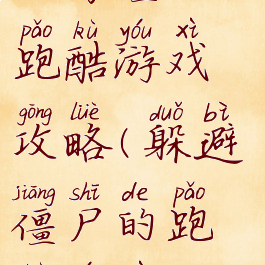 pǎo kù yóu xì
跑酷游戏
gōng lüè duǒ bì
攻略(躲避
jiāng shī de pǎo
僵尸的跑